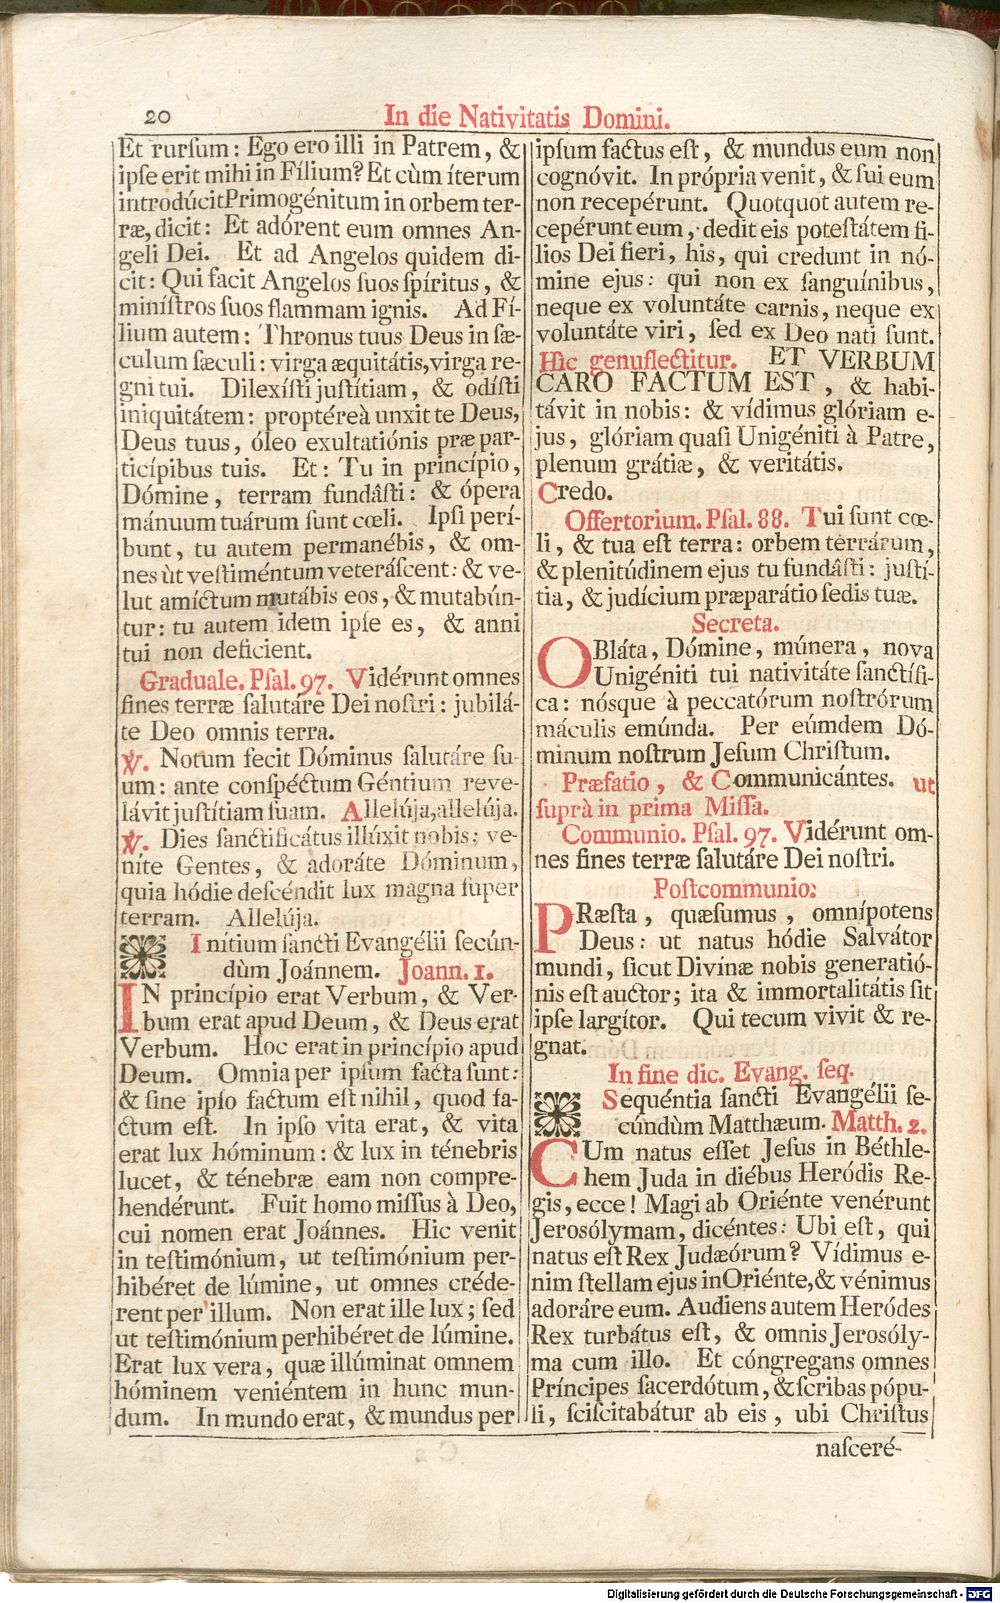 20
In die Nativitatis Domini.
Et rurſum: Ego ero illi in Patrem, &
ipſe erit mihi in Fílium? Et cùm íterum
introdúcit Primogénitum in orbem ter-
ræ, dicit: Et adórent eum omnes An-
geli Dei. Et ad Angelos quidem di-
cit: Qui facit Angelos ſuos ſpíritus, &
miníſtros ſuos flammam ignis. Ad Fí-
lium autem: Thronus tuus Deus in ſæ-
culum ſæculi: virga æquitátis, virga re-
gni tui. Dilexíſti juſtítiam, & odíſti
iniquitátem: proptéreà unxit te Deus,
Deus tuus, óleo exultatiónis præ par-
ticípibus tuis. Et: Tu in princípio,
Dómine, terram fundâſti: & ópera
mánuum tuárum ſunt cœli. Ipſi perí-
bunt, tu autem permanébis, & om-
nes ùt veſtiméntum veteráſcent: & ve-
lut amíctum mutábis eos, & mutabún-
tur: tu autem idem ipſe es, & anni
tui non deficient.
Graduale. Pſal. 97. Vidérunt omnes
fines terræ ſalutáre Dei noſtri: jubilá-
te Deo omnis terra.
℣. Notum fecit Dóminus ſalutáre ſu-
um: ante conſpéctum Géntium reve-
lávit juſtítiam ſuam. Allelúja, allelúja.
℣. Dies ſanctificátus illúxit nobis: ve-
níte Gentes, & adoráte Dóminum,
quia hódie deſcéndit lux magna ſuper
terram. Allelúja.
Initium ſancti Evangélii ſecún-
dùm Joánnem. Joann. 1.
IN princípio erat Verbum, & Ver-
bum erat apud Deum, & Deus erat
Verbum. Hoc erat in princípio apud
Deum. Omnia per ipſum facta ſunt:
& ſine ipſo factum eſt nihil, quod fa-
ctum eſt. In ipſo vita erat, & vita
erat lux hóminum: & lux in ténebris
lucet, & ténebræ eam non compre-
hendérunt. Fuit homo miſſus à Deo,
cui nomen erat Joánnes. Hic venit
in teſtimónium, ut teſtimónium per-
hibéret de lúmine, ut omnes créde-
rent per illum. Non erat ille lux; ſed
ut teſtimónium perhibéret de lúmine.
Erat lux vera, quæ illúminat omnem
hóminem veniéntem in hunc mun-
dum. In mundo erat, & mundus per
ipſum factus eſt, & mundus eum non
cognóvit. In própria venit, & ſui eum
non recepérunt. Quotquot autem re-
cepérunt eum, dedit eis poteſtátem fi-
lios Dei fieri, his, qui credunt in nó-
mine ejus: qui non ex ſanguínibus,
neque ex voluntáte carnis, neque ex
voluntáte viri, ſed ex Deo nati ſunt.
Hîc genuflectitur. ET VERBUM
CARO FACTUM EST, & habi-
távit in nobis: & vídimus glóriam e-
jus, glóriam quaſi Unigéniti à Patre,
plenum grátiæ, & veritátis.
Credo.
Offertorium. Pſal. 88. Tui ſunt cœ-
li, & tua eſt terra: orbem terrárum,
& plenitúdinem ejus tu fundâſti: juſtí-
tia, & judícium præparátio ſedis tuæ.
Secreta.
OBláta, Dómine, múnera, nova
Unigéniti tui nativitáte ſanctífi-
ca: nósque à peccatórum noſtrórum
máculis emúnda. Per eúmdem Dó-
minum noſtrum Jeſum Chriſtum.
Præfatio, & Communicántes. ut
ſuprà in prima Miſſa.
Communio. Pſal. 97. Vidérunt om-
nes fines terræ ſalutáre Dei noſtri.
Poſtcommunio:
PRæſta, quæſumus, omnípotens
Deus: ut natus hódie Salvátor
mundi, ſicut Divínæ nobis generatió-
nis eſt auctor; ita & immortalitátis ſit
ipſe largítor. Qui tecum vivit & re-
gnat.
In fine dic. Evang. ſeq.
Sequéntia ſancti Evangélii ſe-
cúndùm Matthæum. Matth. 2.
CUm natus eſſet Jeſus in Béthle-
hem Juda in diébus Heródis Re-
gis, ecce! Magi ab Oriénte venérunt
Jeroſólymam, dicéntes: Ubi eſt, qui
natus eſt Rex Judæórum? Vídimus e-
nim ſtellam ejus in Oriénte, & vénimus
adoráre eum. Audiens autem Heródes
Rex turbátus eſt, & omnis Jeroſóly-
ma cum illo. Et cóngregans omnes
Príncipes ſacerdótum, & ſcribas pópu-
li, ſciſcitabátur ab eis, ubi Chriſtus
naſceré-
Digitalisierung gefördert durch die Deutsche Forschungsgemeinschaft - DFG